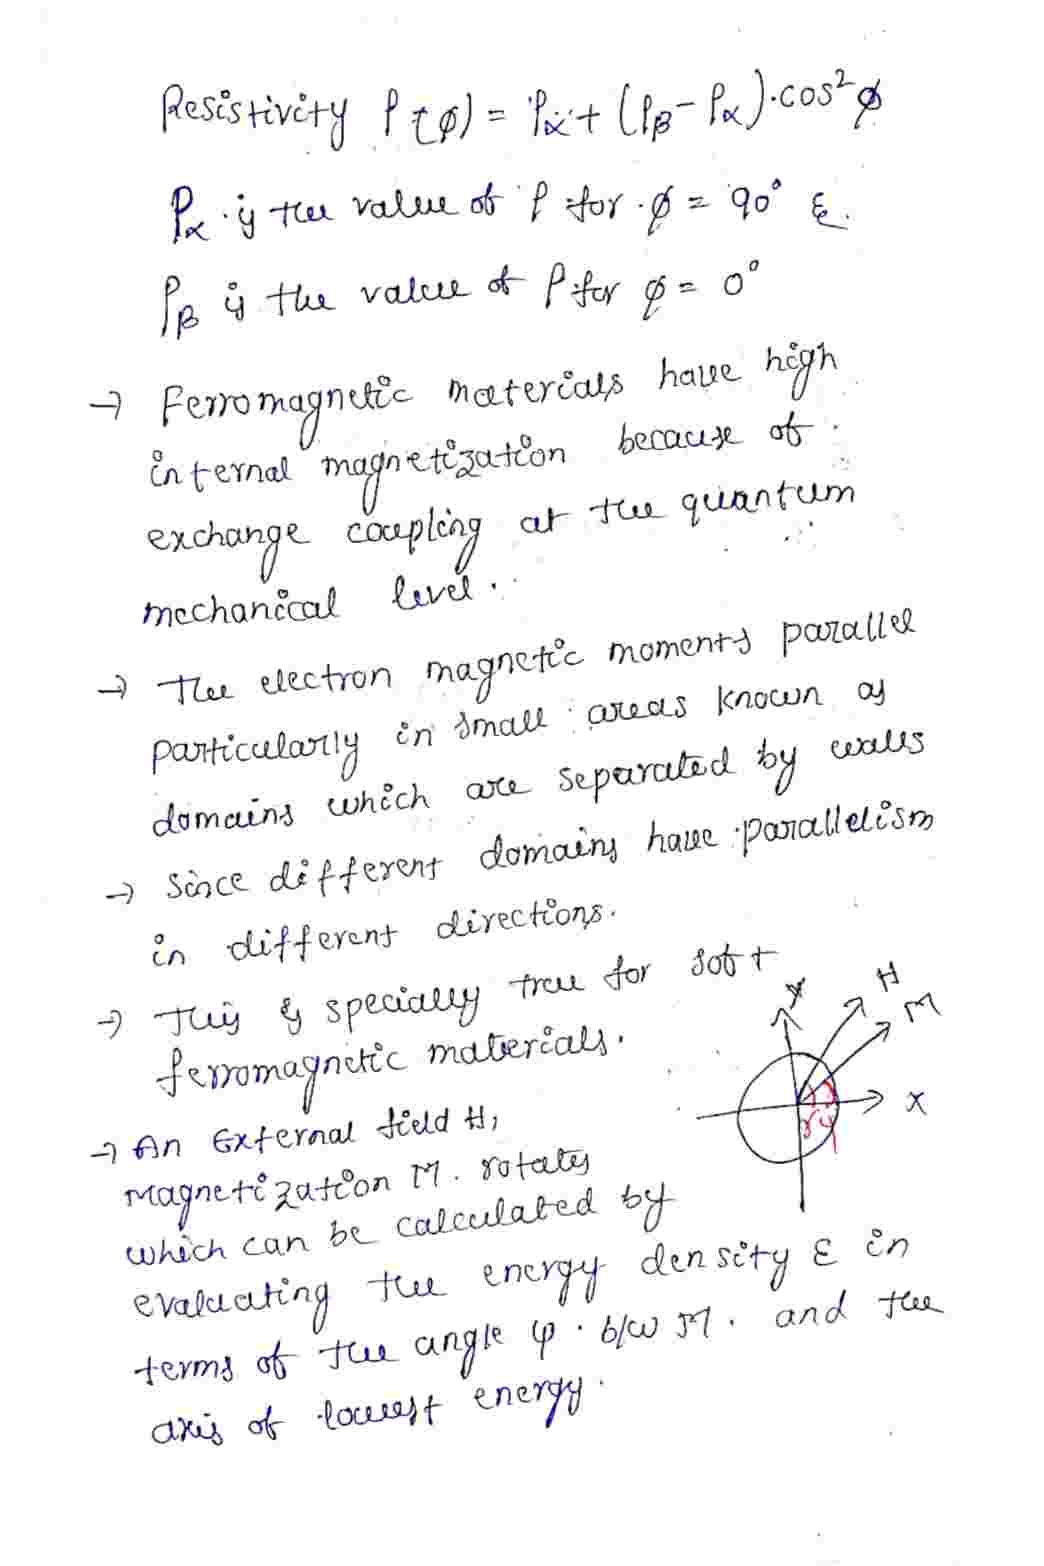 Resistivity ρ(ϕ) = ρα + (ρβ - ρα).cos²ϕ
ρα is the value of ρ for ϕ = 90° &
ρβ is the value of ρ for ϕ = 0°
→ Ferromagnetic materials have high
internal magnetization because of
exchange coupling at the quantum
mechanical level.
→ The electron magnetic moments parallel
particularly in small areas known as
domains which are separated by walls
→ Since different domains have parallelism
in different directions.
→ This is specially true for soft
ferromagnetic materials.
Y H
M
X
→ An External field H,
Magnetization M. rotates
which can be calculated by
evaluating the energy density ε in
terms of the angle φ . b/w M. and the
axis of lowest energy.